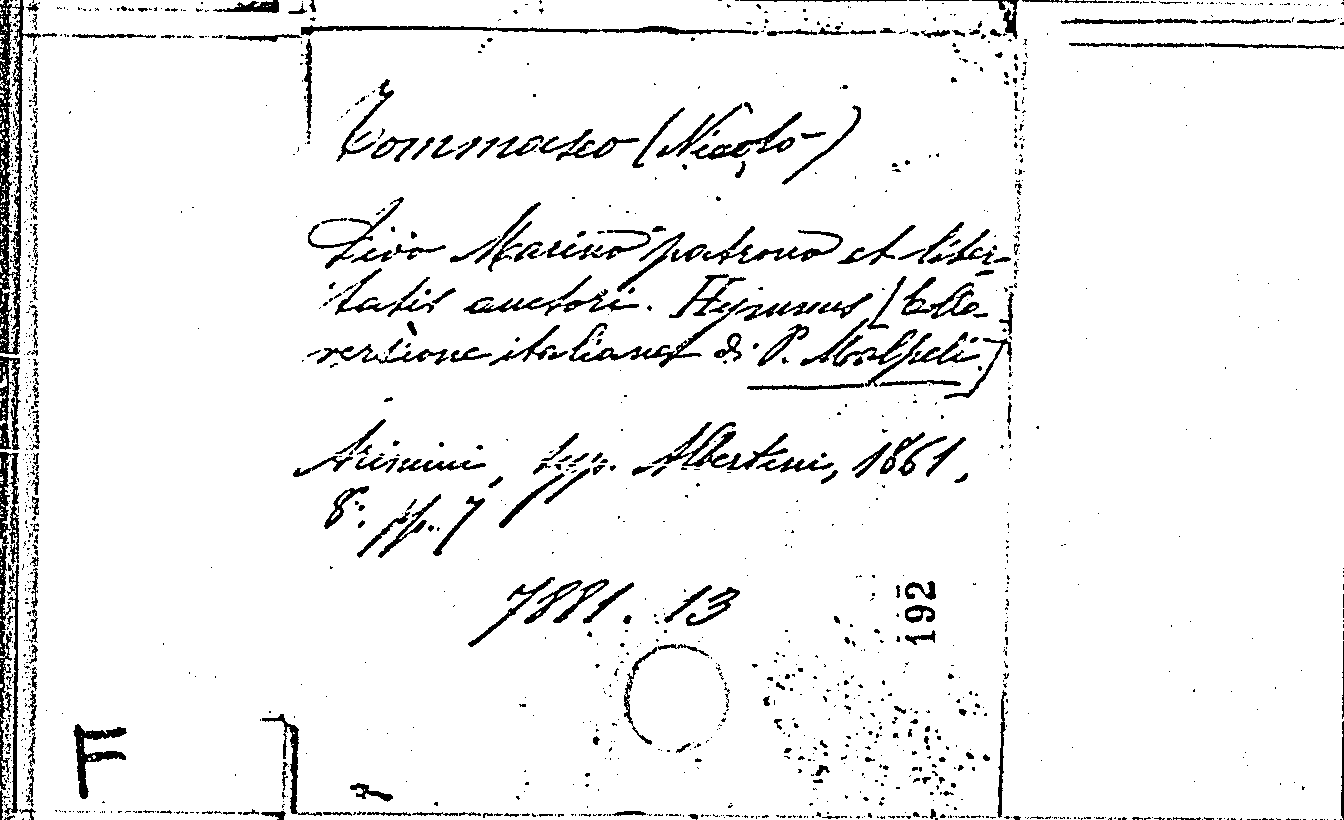 Tommaseo (Nicolò)
Divo Marino patrono et liber-
tatis auctori. Hymnus [Colla
versione italiana di P. Malpeli.]
Arimini, typ. Albertini, 1861,
8°. pp. 7
7881. 13
192
F